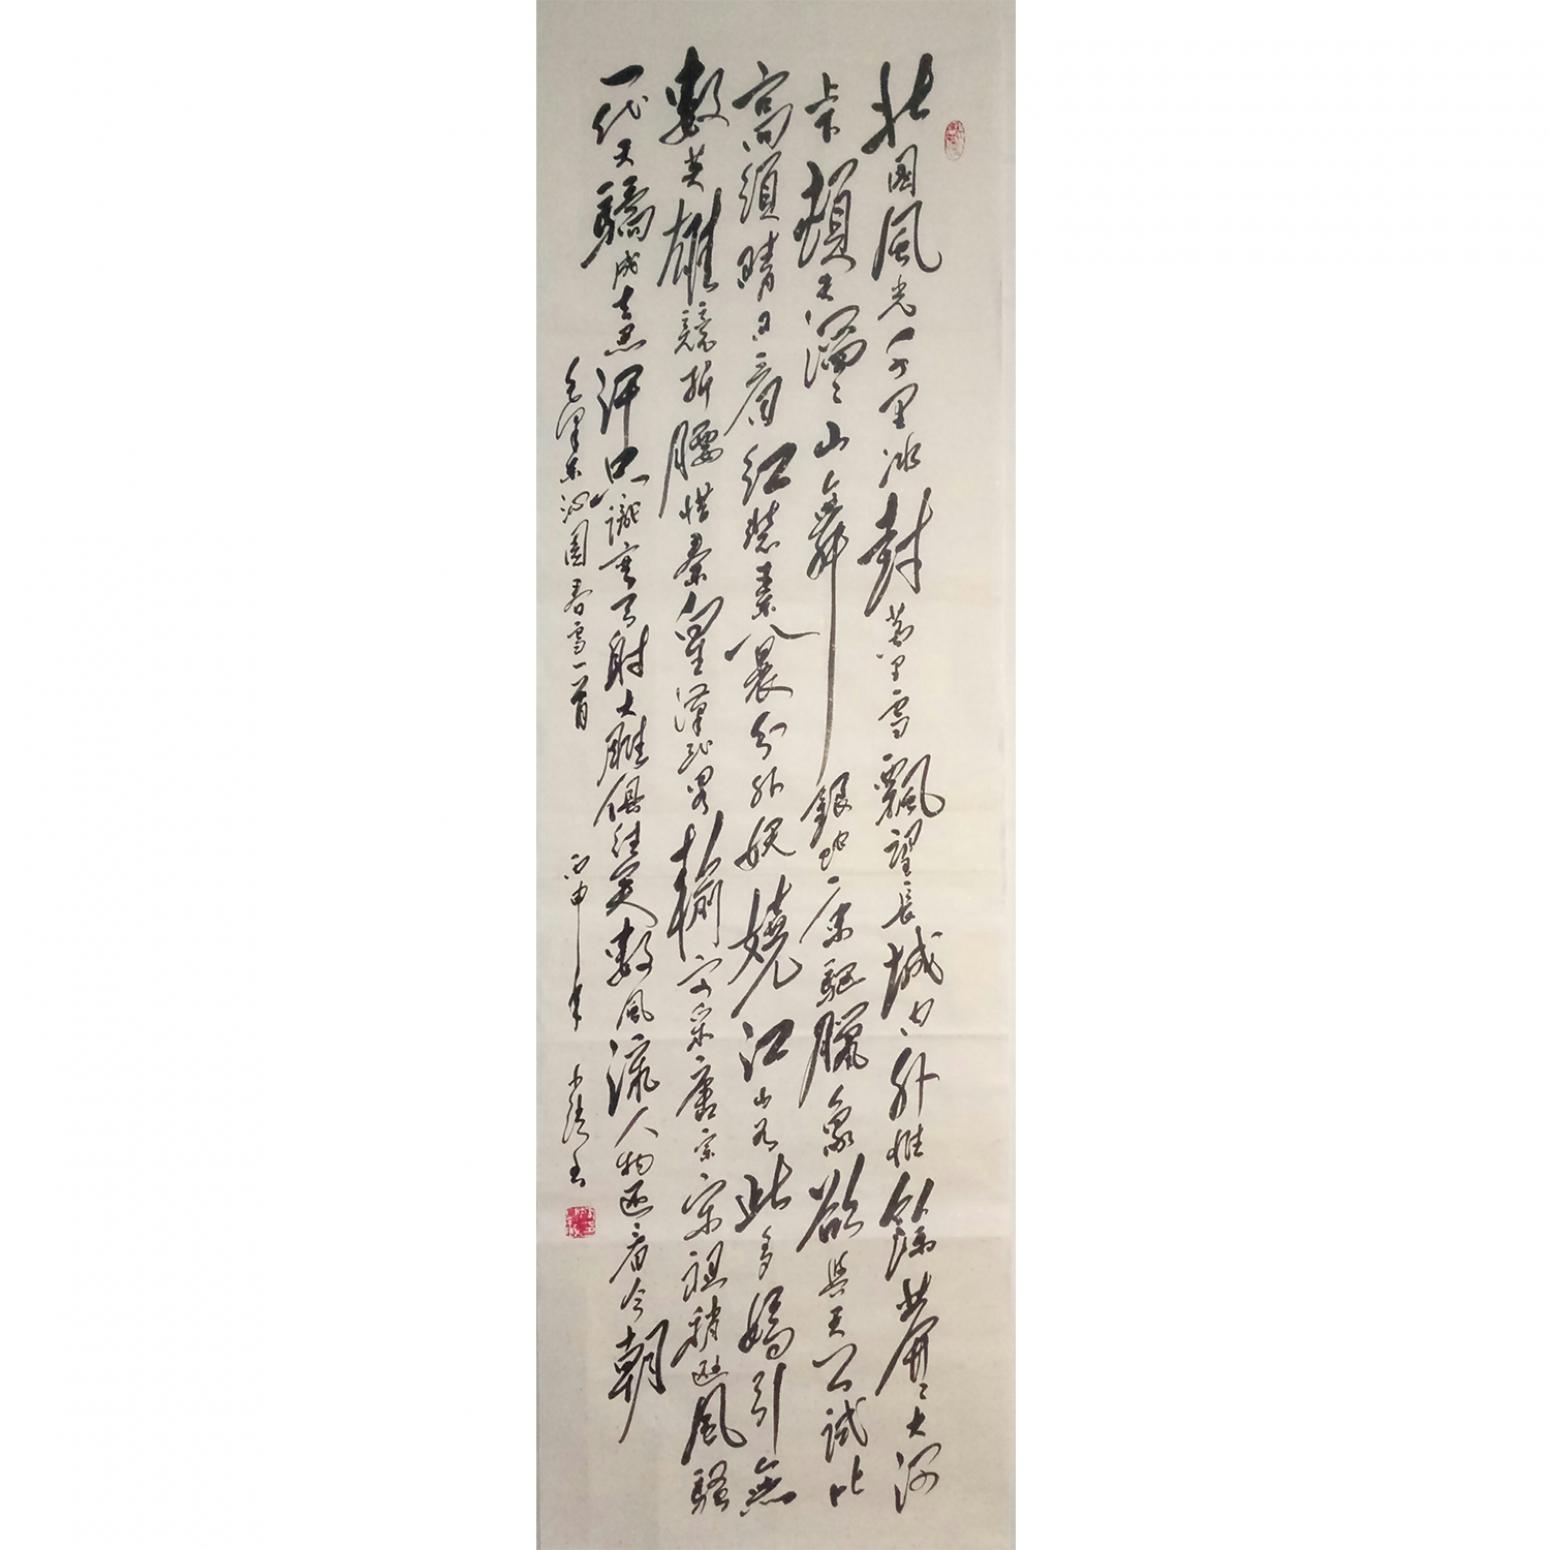 北國風光千里冰封萬里雪飄望長城內外惟餘莽〻大河
上下頓失滔〻山舞銀蛇原馳臘象欲與天公試比
高須晴日看紅裝素裹分外妖嬈江山如此多嬌引無
數英雄競折腰惜秦皇漢武略輸文采唐宗宋祖稍遜風騷
一代天驕成吉思汗只識彎弓射大雕俱往矣數風流人物還看今朝
毛澤東沁園春雪一首 丙申年 書